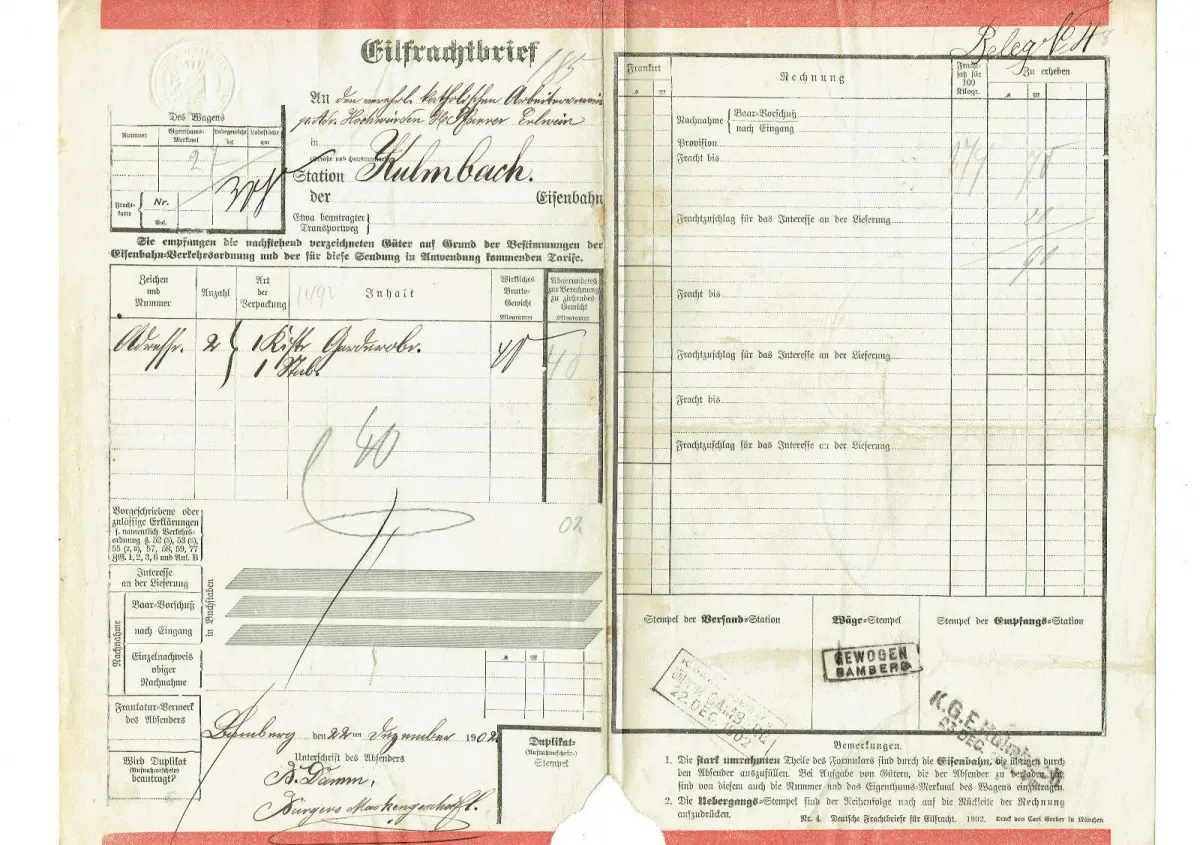 Eilfrachtbrief
185
Beleg No 4
Des Wagens
Nummer
Eigenthums-Merkmal
Ladegewicht kg
Ladefläche qm
2
Fracht-karte
Nr.
Pos.
An den verehrl. katholischen Arbeiterverein
Hochwürden Pfarrer
in
(Straße und Hausnummer)
Station Kulmbach.
der Eisenbahn
Etwa beantragter
Transportweg
Sie empfangen die nachstehend verzeichneten Güter auf Grund der Bestimmungen der
Eisenbahn-Verkehrsordnung und der für diese Sendung in Anwendung kommenden Tarife.
Zeichen und Nummer
Anzahl
Art der Verpackung
Inhalt
Wirkliches Brutto-Gewicht Kilogramm
Abgerundetes zur Berechnung zu ziehendes Gewicht Kilogramm
1492
Adresse. 2 1 Kiste Garderobe. 40 40
1 Stab.
40
02
Vorgeschriebene oder
zulässige Erklärungen
s. namentlich Verkehrs-
ordnung §. 52 (5), 53 (5),
55 (2, 3), 57, 58, 59, 77
Ziff. 1, 2, 3, 6 und Anl. B
Interesse
an der Lieferung
Nachnahme
Baar-Vorschuß
nach Eingang
in Buchstaben
Einzelnachweis
obiger
Nachnahme
Frankatur-Vermerk
des Absenders
Wird Duplikat
(Aufnahmeschein)
beantragt?
Bamberg den 22ten Dezember 1902
Unterschrift des Absenders
B. Damm,
Duplikat-
(Aufnahmeschein)
Stempel
Frankirt
Rechnung
Fracht-satz für 100 Kilogr.
Zu erheben
Nachnahme
Baar-Vorschuß
nach Eingang
Provision
Fracht bis
Frachtzuschlag für das Interesse an der Lieferung
Fracht bis
Frachtzuschlag für das Interesse an der Lieferung
Fracht bis
Frachtzuschlag für das Interesse an der Lieferung
174 70
20
90
Stempel der Versand-Station
Wäge-Stempel
Stempel der Empfangs-Station
BAMBERG
22. DEC. 1902
GEWOGEN
BAMBERG
K.G.E. Kulmbach
23 DEC.
Bemerkungen.
1. Die stark umrahmten Theile des Formulars sind durch die Eisenbahn, die übrigen durch
den Absender auszufüllen. Bei Aufgabe von Gütern, die der Absender zu verladen hat,
sind von diesem auch die Nummer und das Eigenthums-Merkmal des Wagens einzutragen.
2. Die Uebergangs-Stempel sind der Reihenfolge nach auf die Rückseite der Rechnung
aufzudrücken.
Nr. 4. Deutsche Frachtbriefe für Eilfracht. 1902. Druck von Carl Gerber in München.